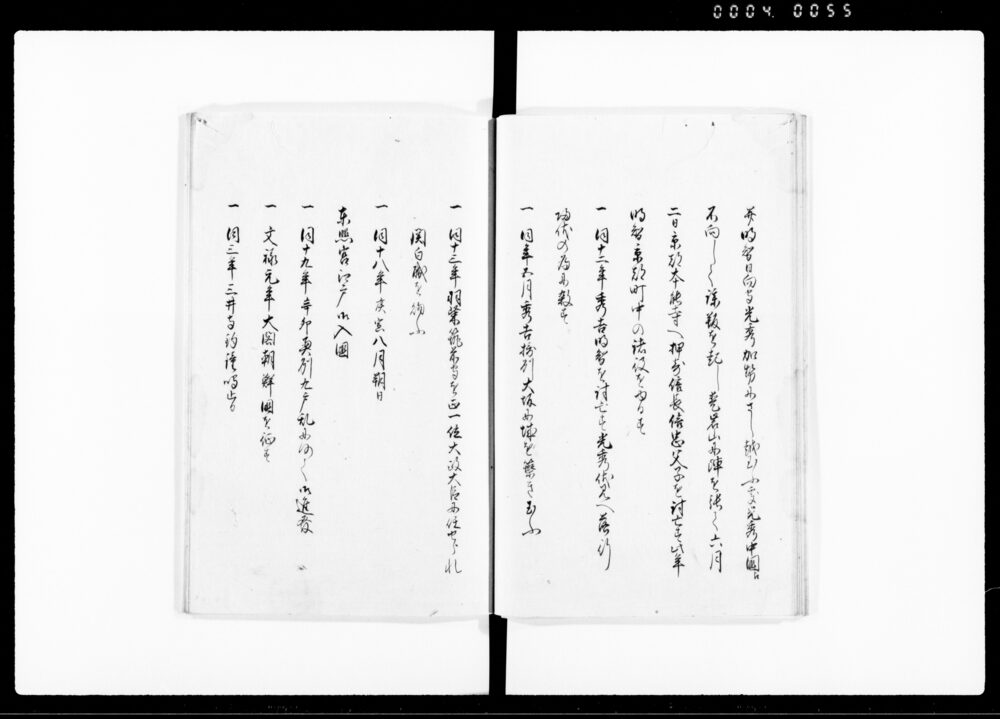 0004 0055
并明智日向守光秀加勢にさし越ひふ光秀中国江
不向して謀叛を起し老若山に陣を張て六月
二日京都本能寺へ押寄信長信忠父子を討亡す此年
明智京都町中の諸役を免す
一 同十二年秀吉明智を討亡す光秀伏見へ落行
落代の為に
一 同年五月秀吉摂州大坂に城を築き玉ふ
一 同十三年羽柴筑前守を正一位大政大臣に任せられ
関白職を給ふ
一 同十八年庚寅八月朔日
東照宮江戸御入国
一 同十九年辛卯奥州九戸乱によつて御進発
一 文禄元年大閤朝鮮国を征す
一 同三年三井寺釣鐘鳴止る